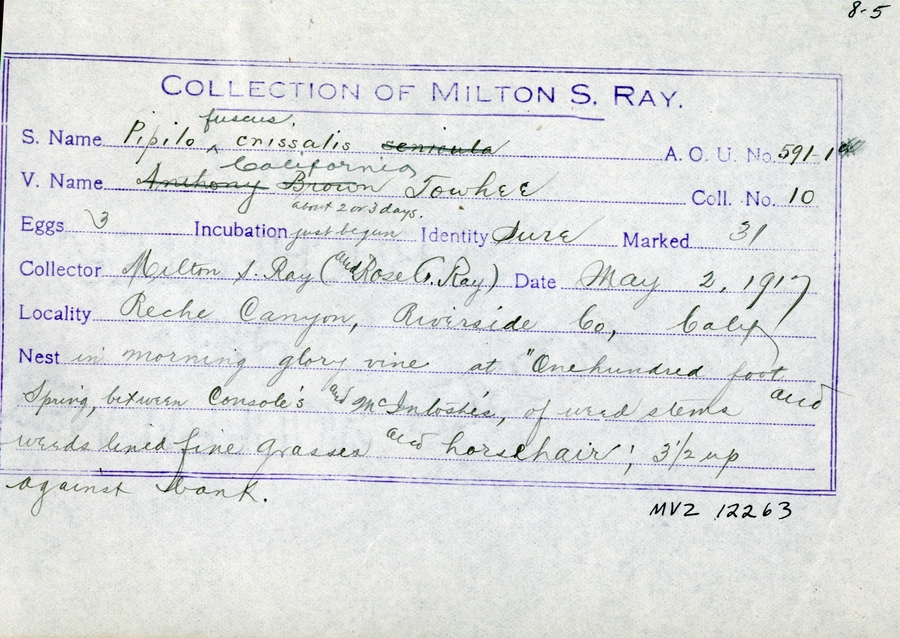 8-5
COLLECTION OF MILTON S. RAY.
fuscus.
S. Name Pipilo ^ crissalis senicula A. O. U. No. 591-1
California
V. Name Anthony Brown Towhee Coll. No. 10
about 2 or 3 days.
Eggs 3 Incubation just begun Identity Sure Marked 31
Collector Milton S. Ray (and Rose C. Ray) Date May 2, 1917
Locality Reche Canyon, Riverside Co, Calif
Nest in morning glory vine at "Onehundred foot
Spring, between Console's and McIntoshe's, of weed stems and
weeds lined fine grasses and horsehair; 3 1/2 up
against bank.
MVZ 12263